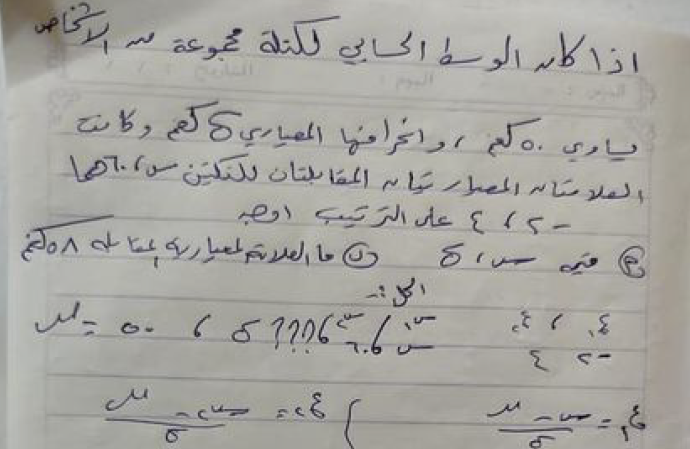 اذا كان الوسط الحسابي لكتلة مجموعة من الاشخاص
يساوي ٥٠ كغم ، وانحرافها المعياري δ كغم وكانت
العلامتان المعياريتان المقابلتان للكتلتين س ، ٦٠ هما
-٢ ، ٤ على الترتيب اوجد
م قيمة س ، δ ن ما العلامة المعيارية المقابلة ٥٨ كغم
الحل :-
μ = ٥٠ ، δ ??? ، س١ س٢ ع١ ، ع٢
س ٦٠ -٢ ٤
ع١ = س١ - μ / δ ع٢ = س٢ - μ / δ